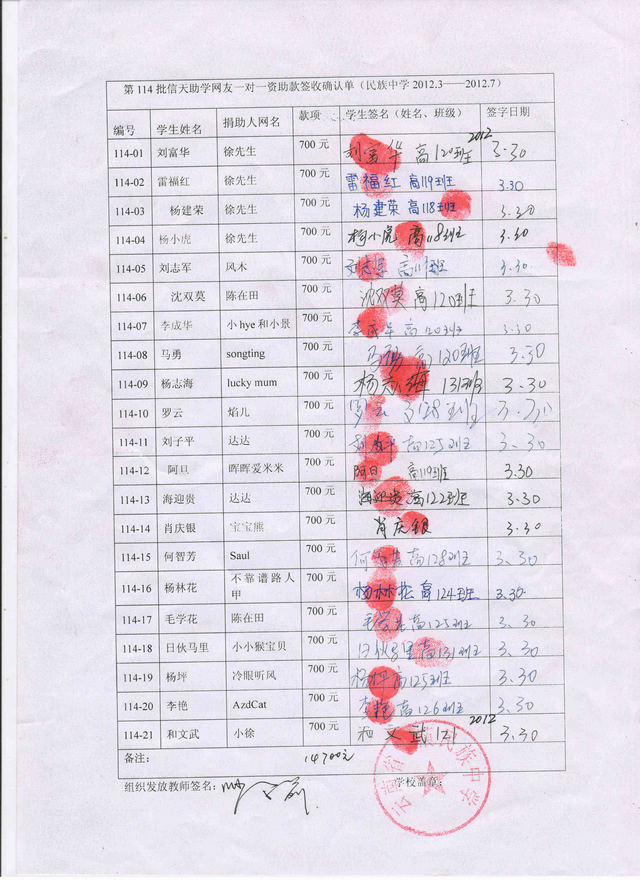 第 114 批信天助学网友一对一资助款签收确认单（民族中学 2012.3——2012.7）
编号 学生姓名 捐助人网名 款项 学生签名（姓名、班级） 签字日期
2012
114-01 刘富华 徐先生 700 元 刘富华 高120班 3.30
114-02 雷福红 徐先生 700 元 雷福红 高119班 3.30
114-03 杨建荣 徐先生 700 元 杨建荣 高118班 3.30
114-04 杨小虎 徐先生 700 元 杨小虎 高118班 3.30
114-05 刘志军 风木 700 元 刘志军 高119班 3.30
114-06 沈双莫 陈在田 700 元 沈双莫 高120班 3.30
114-07 李成华 小 hye 和小景 700 元 李成华 高120班 3.30
114-08 马勇 songting 700 元 马勇 高120班 3.30
114-09 杨志海 lucky mum 700 元 杨志海 131班 3.30
114-10 罗云 焰儿 700 元 罗云 128班 3.30
114-11 刘子平 达达 700 元 刘子平 高125班 3.30
114-12 阿旦 晖晖爱米米 700 元 阿旦 高119班 3.30
114-13 海迎贵 达达 700 元 海迎贵 高122班 3.30
114-14 肖庆银 宝宝熊 700 元 肖庆银 3.30
114-15 何智芳 Saul 700 元 何智芳 高128班 3.30
114-16 杨林花 不靠谱路人甲 700 元 杨林花 高124班 3.30
114-17 毛学花 陈在田 700 元 毛学花 高125班 3.30
114-18 日伙马里 小小猴宝贝 700 元 日伙马里 高131班 3.30
114-19 杨坪 冷眼听风 700 元 杨坪 高125班 3.30
114-20 李艳 AzdCat 700 元 李艳 高126班 3.30
2012
114-21 和文武 小徐 700 元 和文武 121 3.30
备注： 14700元
组织发放教师签名： 学校盖章：
云南省 民族中学